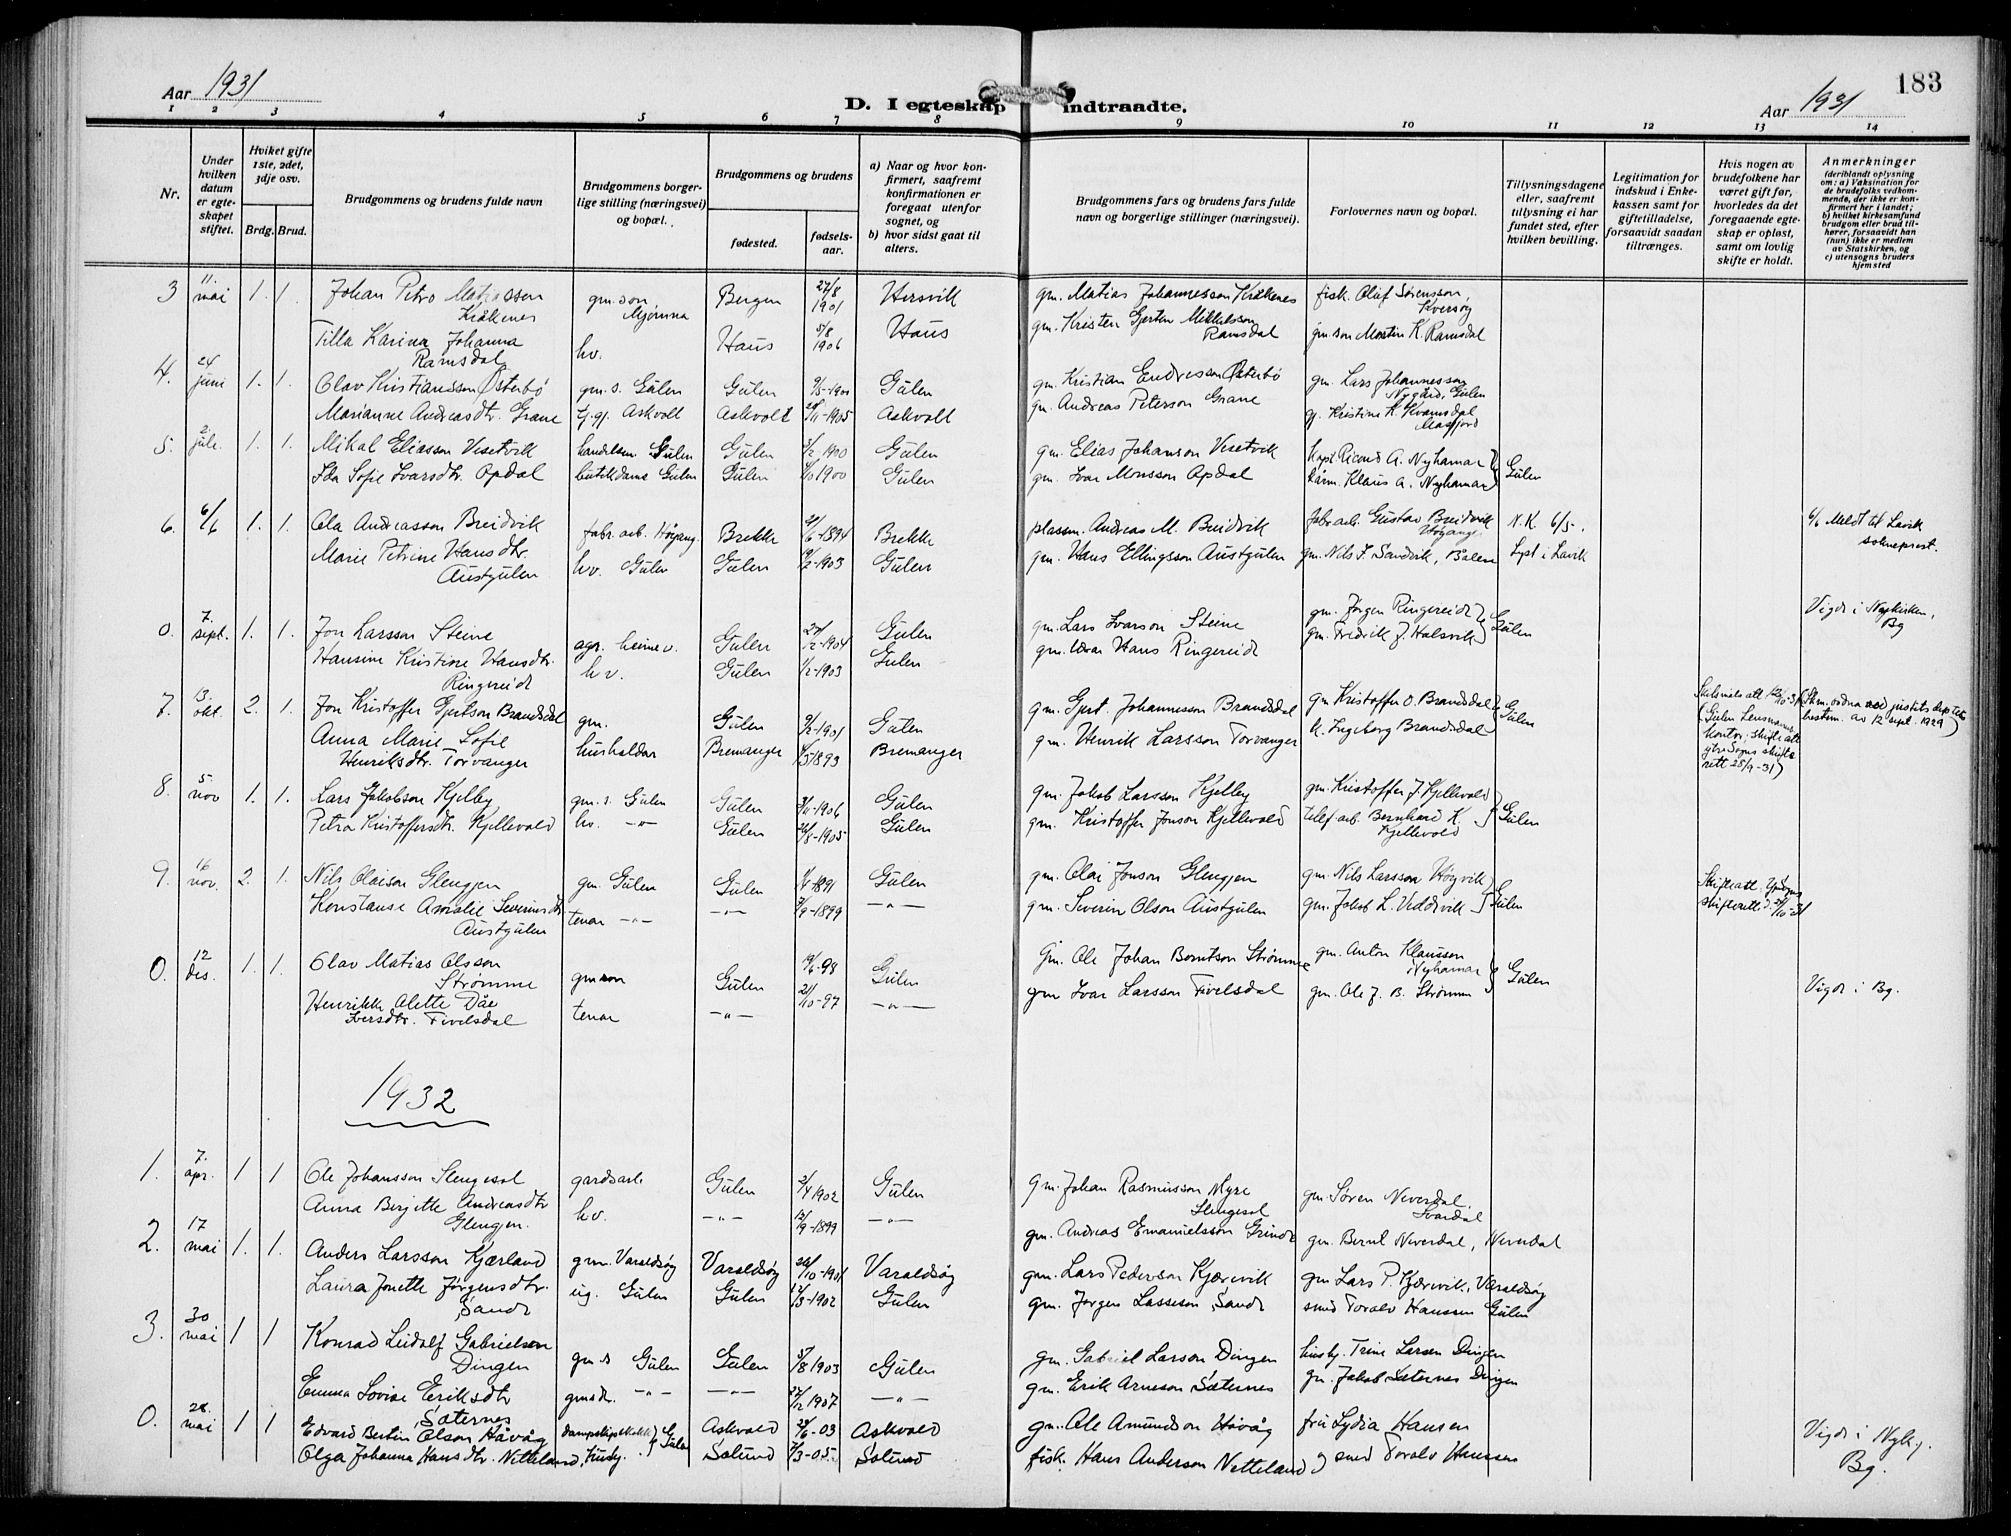 183
Aar 1931
D. I egteskap indtraadte.
Aar 1931
1 2 3 4 5 6 7 8 9 10 11 12 13 14
Nr.
Under hvilken datum er egteskapet stiftet.
Hvilket gifte 1ste, 2det, 3dje osv.
Brdg. Brud.
Brudgommens og brudens fulde navn
Brudgommens borgerlige stilling (næringsvei) og bopæl.
Brudgommens og brudens
fødested.
fødselsaar.
a) Naar og hvor konfirmert, saafremt konfirmationen er foregaat utenfor sognet, og
b) hvor sidst gaat til alters.
Brudgommens fars og brudens fars fulde navn og borgerlige stillinger (næringsvei).
Forlovernes navn og bopæl.
Tillysningsdagene eller, saafremt tillysning ei har fundet sted, efter hvilken bevilling.
Legitimation for indskud i Enkekassen samt for giftetilladelse, forsaavidt saadan tiltrænges.
Hvis nogen av brudefolkene har været gift før, hvorledes da det foregaaende egteskap er opløst, samt om lovlig skifte er holdt.
Anmerkninger
(deriblandt oplysning om: a) Vaksination for de brudefolks vedkommende, der ikke er konfirmert her i landet; b) hvilket kirkesamfund brudgom eller brud tilhører, forsaavidt han (hun) ikke er medlem av Statskirken, og c) utensogns bruders hjemsted
3 11. mai 1. 1. Johan Petro Matiassen Kråkenes gm. son, Mjømna Bergen 27/8 1901 Hersvik gm. Matias Johannesson Kråkenes fisk. Olaf Sørensson, Kversøy
Tilla Karina Johanna Ramsdal hv. Haus 5/8 1906 Haus gm. Kristen Gjerten Mikkelsson Ramsdal gm. son Morten K. Ramsdal
4. 24 juni 1. 1. Olav Kristiansson Østerbø gm. s. Gulen Gulen 9/5-1901 Gulen gm. Kristian Endresson Østerbø gm. Lars Johannesson Nygård, Gulen
Marianne Andreasdtr. Grane tj.gj. Askvoll Askvoll /11-1905 Askvoll gm. Andreas Peterson Grane gj. Kristine K. Kvamsdal Masfjord
5. 2. juli 1. 1. Mikal Eliasson Visetvik handelsm. Gulen Gulen 3/2 1900 Gulen gm. Elias Johanson Visetvik Kapt. Ricard A. Nyhamar
Ida Sofie Ivarsdtr. Opdal butikdame Gulen Gulen /10 1900 Gulen gm. Ivar Monsson Opdal Klaus A. Nyhamar Gulen
6. 6/6 1. 1. Ola Andreasson Breidvik fabr. arb. Høyang. Brekke 9/6-1894 Brekke plassm. Andreas M. Breidvik fabr arb. Gustav Breidvik Høyang N.K. 6/5. 6/6 Meldt til Lavik sokneprest.
Marie Petrine Hansdtr. Austgulen hv. Gulen Gulen 19/2-1903 Gulen gm. Hans Ellingsson Austgulen gm. Nils J. Sandvik, Bålen Lyst i Lavik
0. 7. sept. 1. 1. Jon Larsson Steine agr. heime v. Gulen 27/2-1904 Gulen gm. Lars Ivarson Steine gm. Jørgen Ringereide Gulen Vigde i Nykirken, Bg
Hansine Kristine Hansdtr. Ringereide hv. Gulen 1/2-1903 Gulen gm. lærar Hans Ringereide gm. Fredrik J. Halsvik
7. 13. okt. 2. 1. Jon Kristoffer Gjertson Brandsdal gm. Gulen 9/2-1901 Gulen gm. Gjert Johannesson Brandsdal gm Kristoffer O. Brandsdal Gulen
Anna Marie Sofie Henriksdtr. Torvanger husholdar Bremanger /5 1893 Bremanger gm. Henrik Larsson Torvanger k. Ingeborg Brandsdal
Gulen Lensmanns kontor; skifte att ytre Sogns skifterett 25/9-31
Skm. ordna ved justits dep.tets bestem. av 12 sept. 1929
8. 5. nov 1. 1. Lars Jakobson Kjelby gm. s. Gulen Gulen 3/11-1906 Gulen gm. Jakob Larsson Kjelby gm. Kristoffer J. Kjellevold Gulen
Petra Kristoffersdtr. Kjellevold hv. -"- Gulen 26/8-1905 Gulen gm. Kristoffer Jonson Kjellevold telef. arb. Bernhard K. Kjellevold
9. 16 nov. 2. 1. Nils Olaison Glengjen gm. Gulen Gulen 1/4-1891 Gulen gm. Olai Jonson Glengjen gm. Nils Larsson Høyvik Gulen
Konstanse Amalie Severinsdtr. Austgulen tenar -"- -"- 7/9-1899 -"- gm. Severin Olson Austgulen gm. Jakob L. Vidsvik
0. 12 des. 1. 1. Olav Matias Olsson Strømme gm son Gulen 19/6-98 Gulen gm. Ole Johan Berntson Strømme gm. Anton Klausson Nyhamar Gulen Vigde i Bg.
Henrikke Olette Dåe Iversdtr. Fivelsdal tenar -"- 21/10-97 -"- gm Ivar Larsson Fivelsdal gm. Ole J. B. Strømme
1932
1. 7. apr. 1 1 Ole Johansson Slengesol gardsarb Gulen 2/4 1902 Gulen gm. Johan Rasmusson Myre Slengesol gm. Søren Neverdal, Svardal
Anna Berjitte Andreasdtr Glengjen. hv. -"- 12/9-1899 -"- gm. Andreas Emanuelsson Grinde gm. Bernt Neverdal, Neverdal
2. 17 mai 1. 1. Anders Larsson Kjærland gm. Varaldsøy Varaldsøy 26/10-1901 Varaldsøy gm. Lars Pederson Kjærevik gm Lars P. Kjærevik, Varaldsøy
Laura Jonette Jørgensdtr. Sande ug. Gulen Gulen 12/3-1902 Gulen gm. Jørgen Lasseson Sande smed Toralv Hanssen Gulen
3. 30 mai 1 1 Konrad Leidolf Gabrielsen Dingen gm. s Gulen Gulen 5/8 1903 Gulen gm. Gabriel Larson Dingen husby. Trine Larsen Dingen
Emma Lovise Eriksdtr Sæternes gmsdr. -"- -"- 27/12 1907 -"- gm. Erik Arneson Sæternes gm. Jakob Sæternes Dingen
0. 28. mai 1 1 Edvard Bertin Olson Håvåg dampskipskokk Gulen Askvold 28/6-03 Askvold gm. Ole Amundson Håvåg frü Lydia Hansen Vigde i Nyk., Bg.
Olga Johanna Hansdtr. Netteland, husby. Solund 7/3-05 Solund fisk. Hans Anderson Netteland og smed Toralv Hanssen